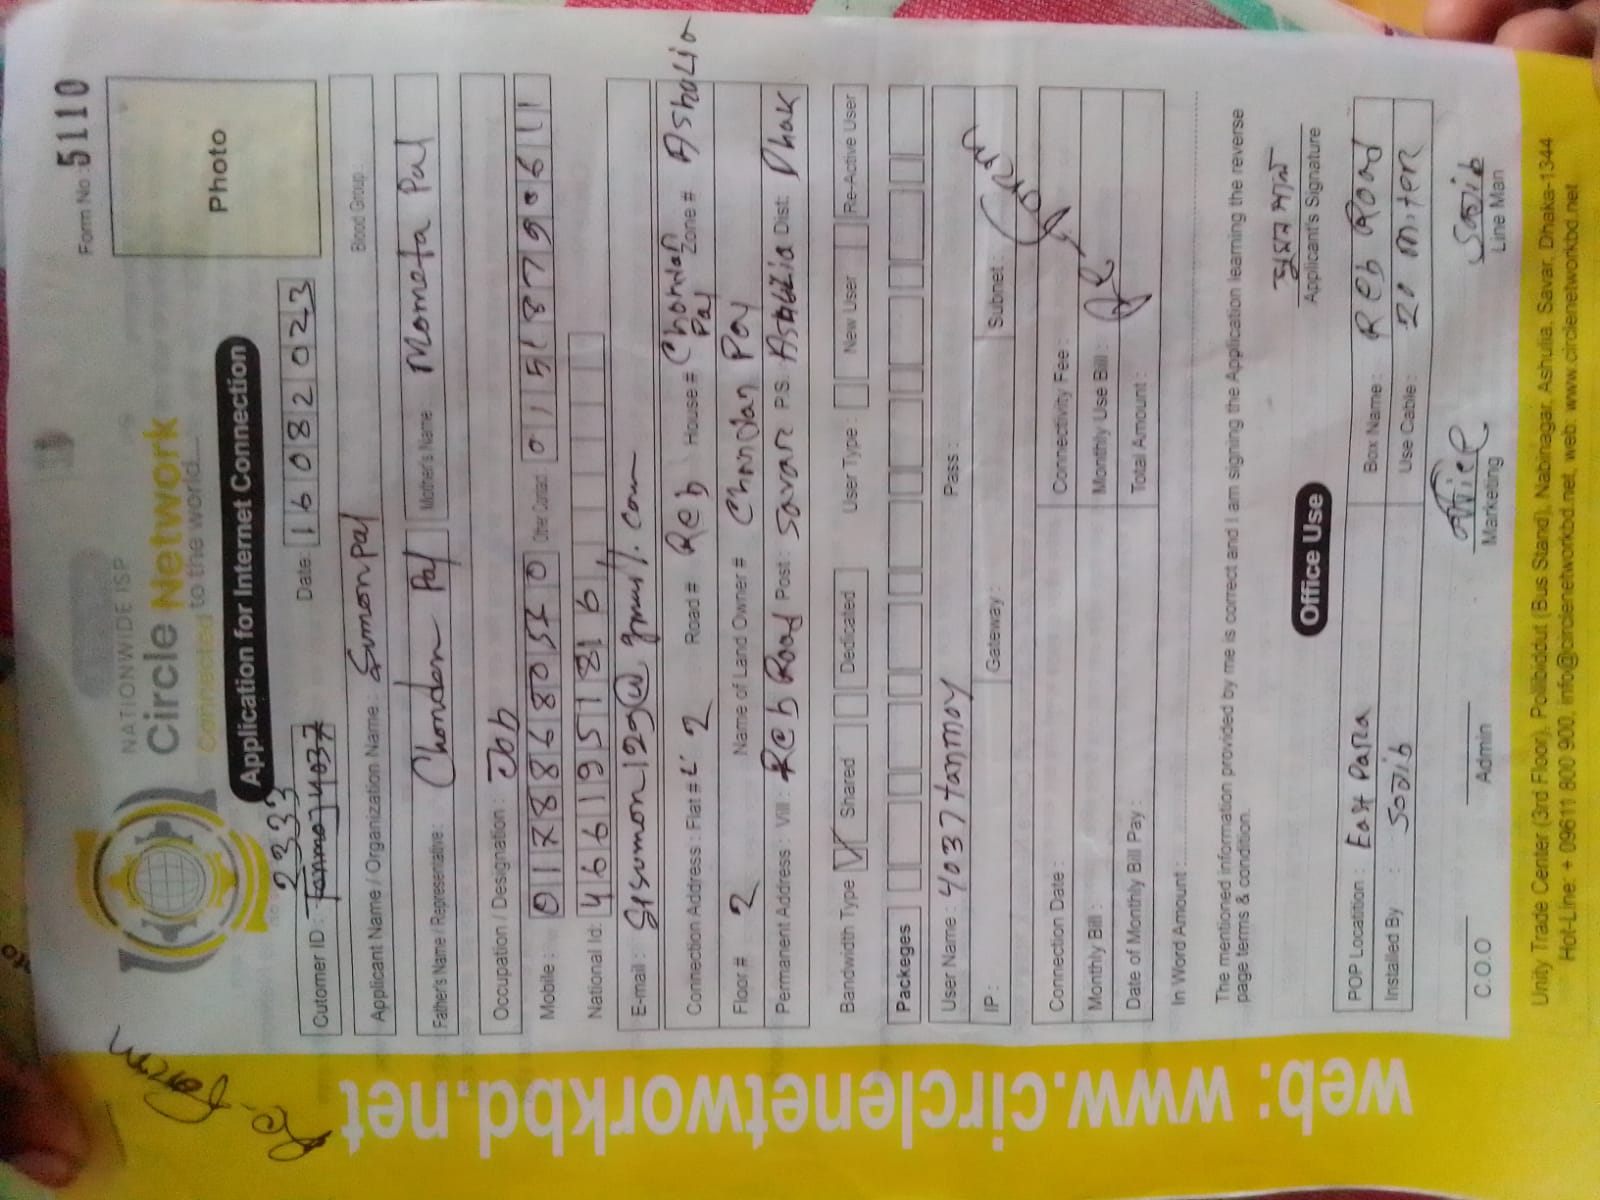 Form No : 5110
NATIONWIDE ISP
Circle Network
Connected to the world....
Photo
Application for Internet Connection
2333
Cutomer ID : Tanmoy4037 Date: 16082023
Applicant Name / Organization Name : Sumonpal Blood Group :
Father's Name / Representative : Chondon Pal Mother's Name : Mometa Pal
Occupation / Designation : Job
Mobile : Other Contact
National Id: 4661951816
E-mail :
Connection Address : Flat # 2 Road # Reb House # Chondan Pal Zone # Ashulia
Floor # 2 Name of Land Owner # Chondan Pay
Permanent Address : Vill : Reb Road Post : Savar P.S. Ashulia Dist: Dhak
Bandwidth Type Shared Dedicated User Type : New User Re-Active User
Packeges
User Name : 4037tanmoy Pass :
IP : Gateway : Subnet :
Connection Date : Connectivity Fee :
Monthly Bill : Monthly Use Bill :
Date of Monthly Bill Pay : Total Amount :
In Word Amount :
The mentioned information provided by me is correct and I am signing the Application learning the reverse
page terms & condition.
সুমন পাল
Applicant's Signature
Office Use
POP Locatition : East Para Box Name : Reb Road
Installed By : Sojib Use Cable : 20 miter
Sojib
C.O.O Admin Marketing Line Man
Unity Trade Center (3rd Floor), Pollibiddut (Bus Stand), Nabinagar, Ashulia, Savar, Dhaka-1344
Hot-Line: + 09611 800 900, info@circlenetworkbd.net, web: www.circlenetworkbd.net
web: www.circlenetworkbd.net